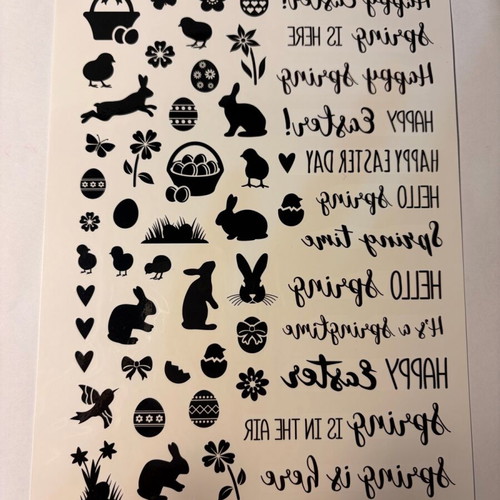 Happy Easter!
Spring IS HERE
Happy Spring
HAPPY Easter!
HAPPY EASTER DAY
HELLO Spring
Spring time
HELLO Spring
It's a Springtime
HAPPY Easter
Spring IS IN THE AIR
Spring is here